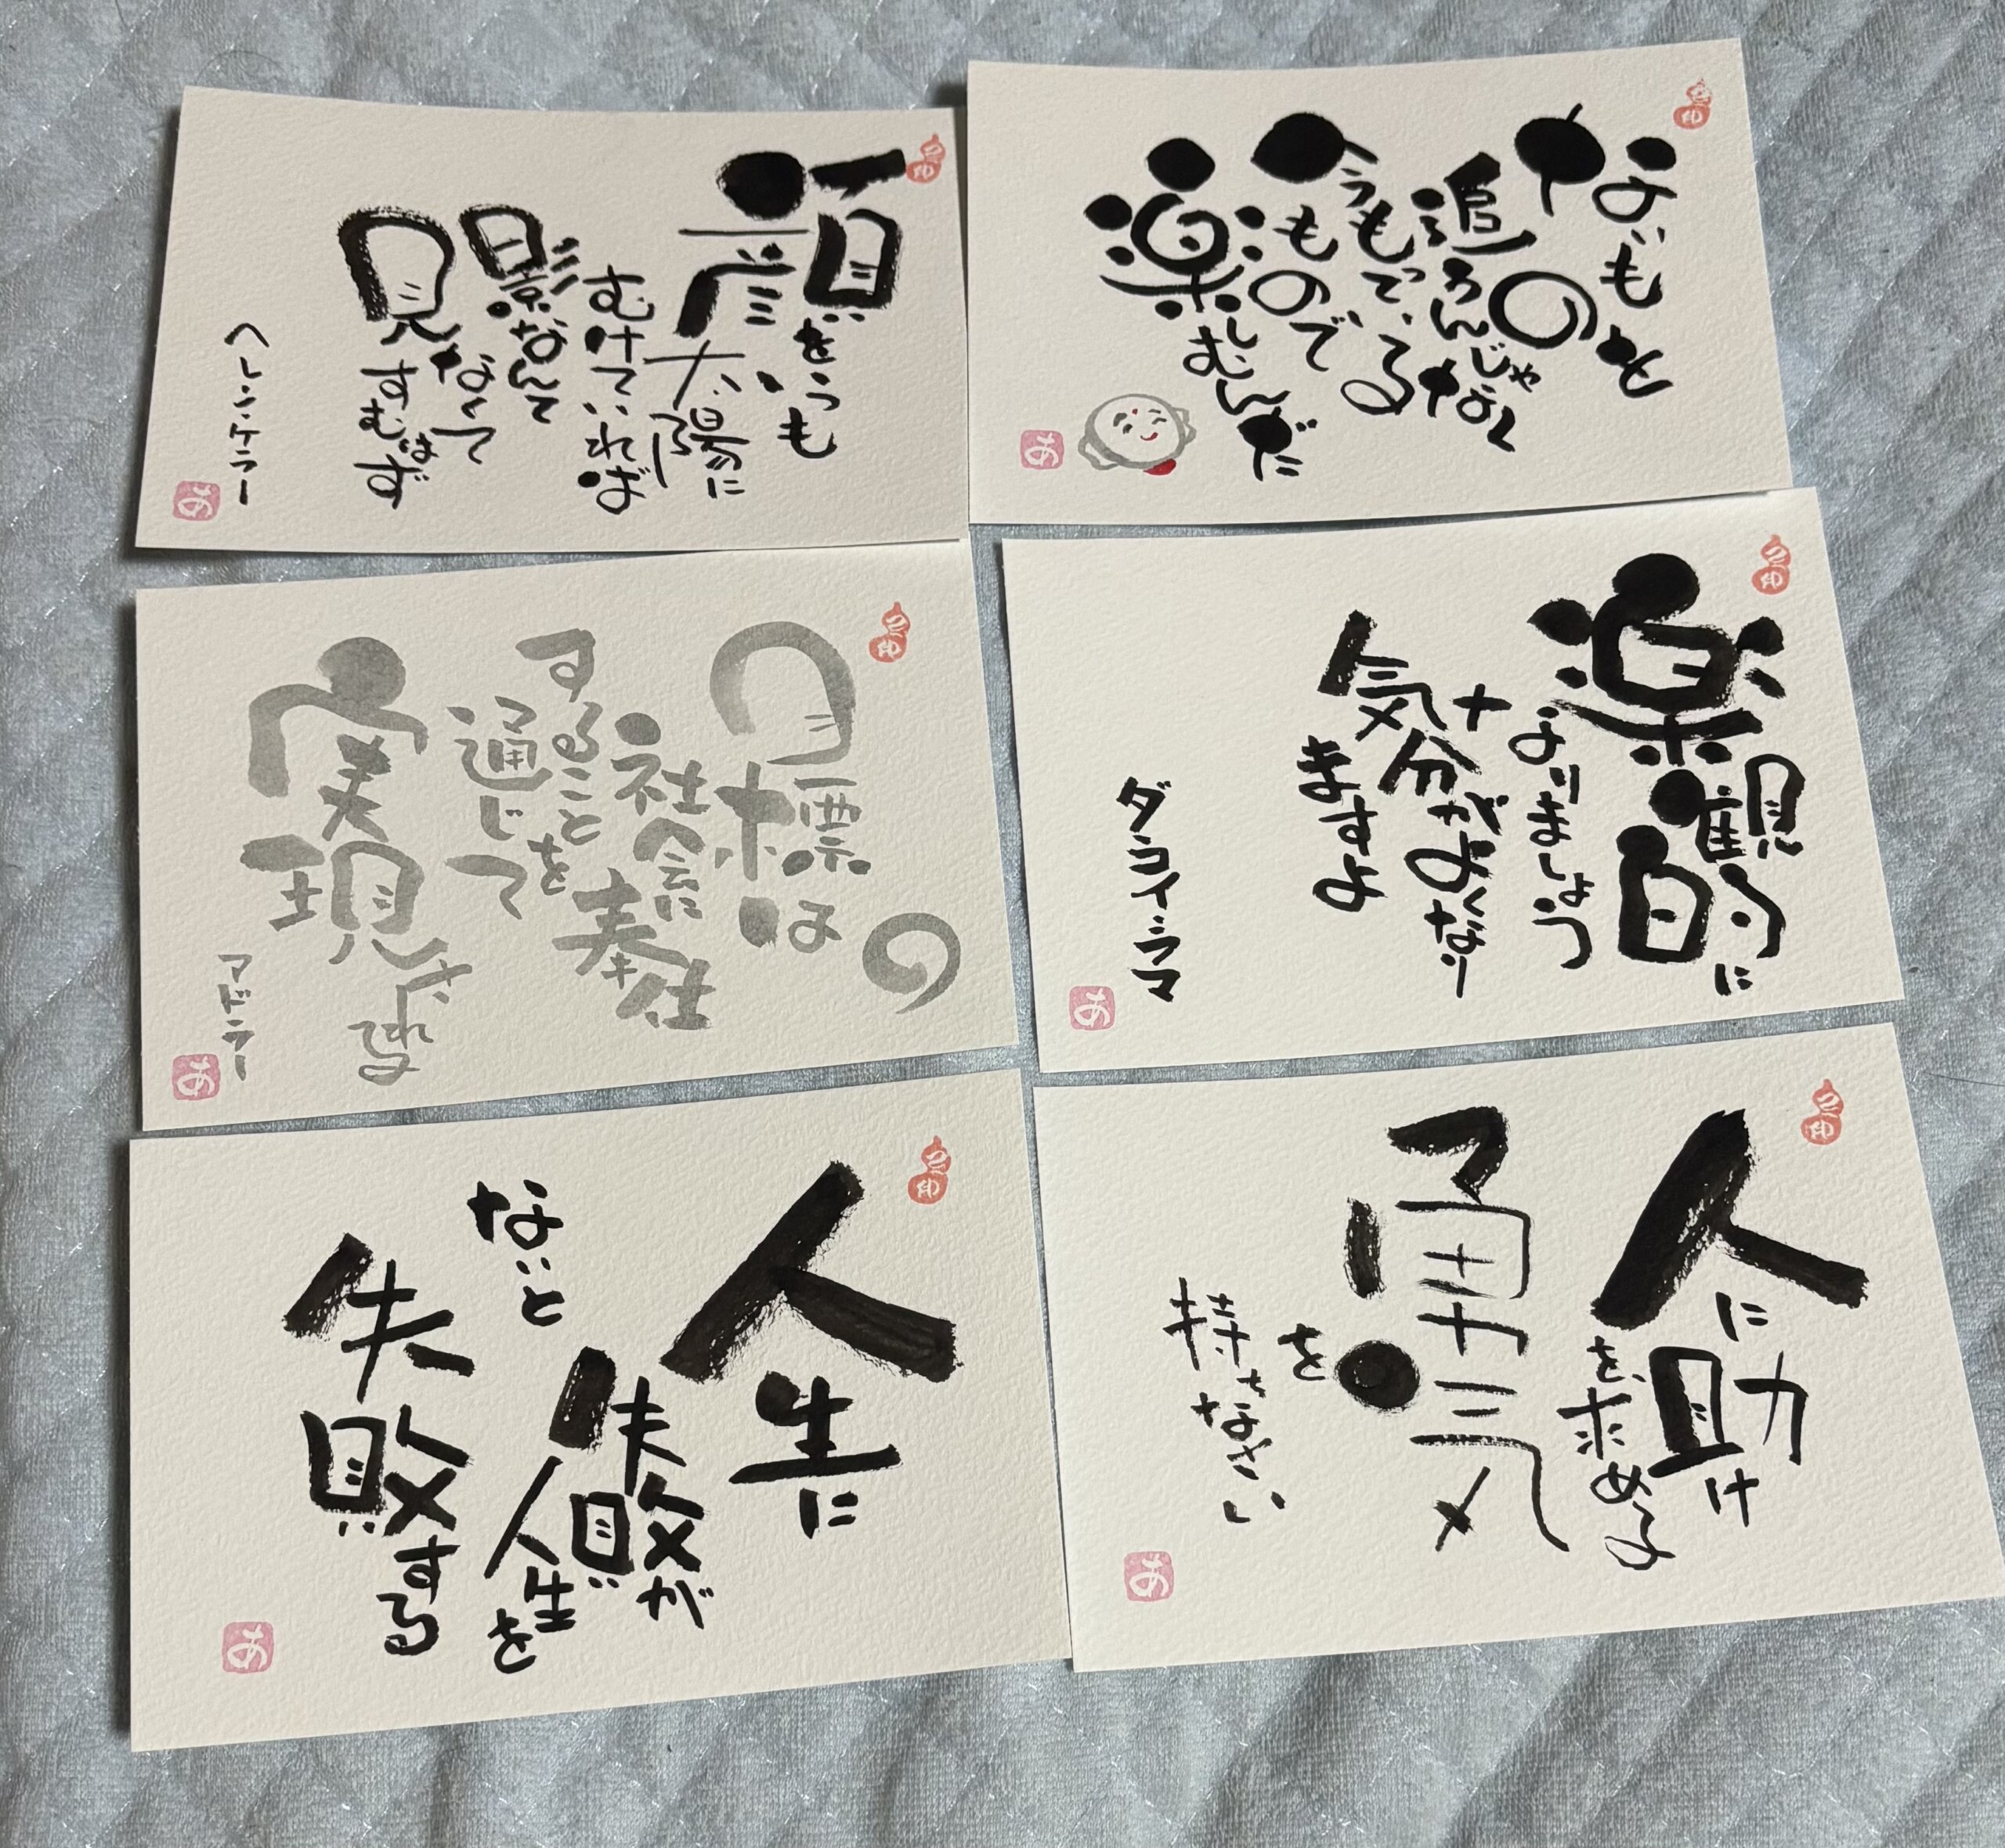 顔をいつも
太陽に
むけていれば
影なんて
見なくて
すむはず
ヘレン・ケラー
あ
ないものを
追うんじゃなく
今もっている
もので
楽しむんだ
あ
目標は
社会に奉仕
することを
通じて
実現される
アドラー
あ
楽観的に
なりましょう
気分がよくなり
ますよ
ダライ・ラマ
あ
人生に
失敗が
ないと
人生を
失敗する
あ
人に助け
を求める
勇気
を
持ちなさい
あ